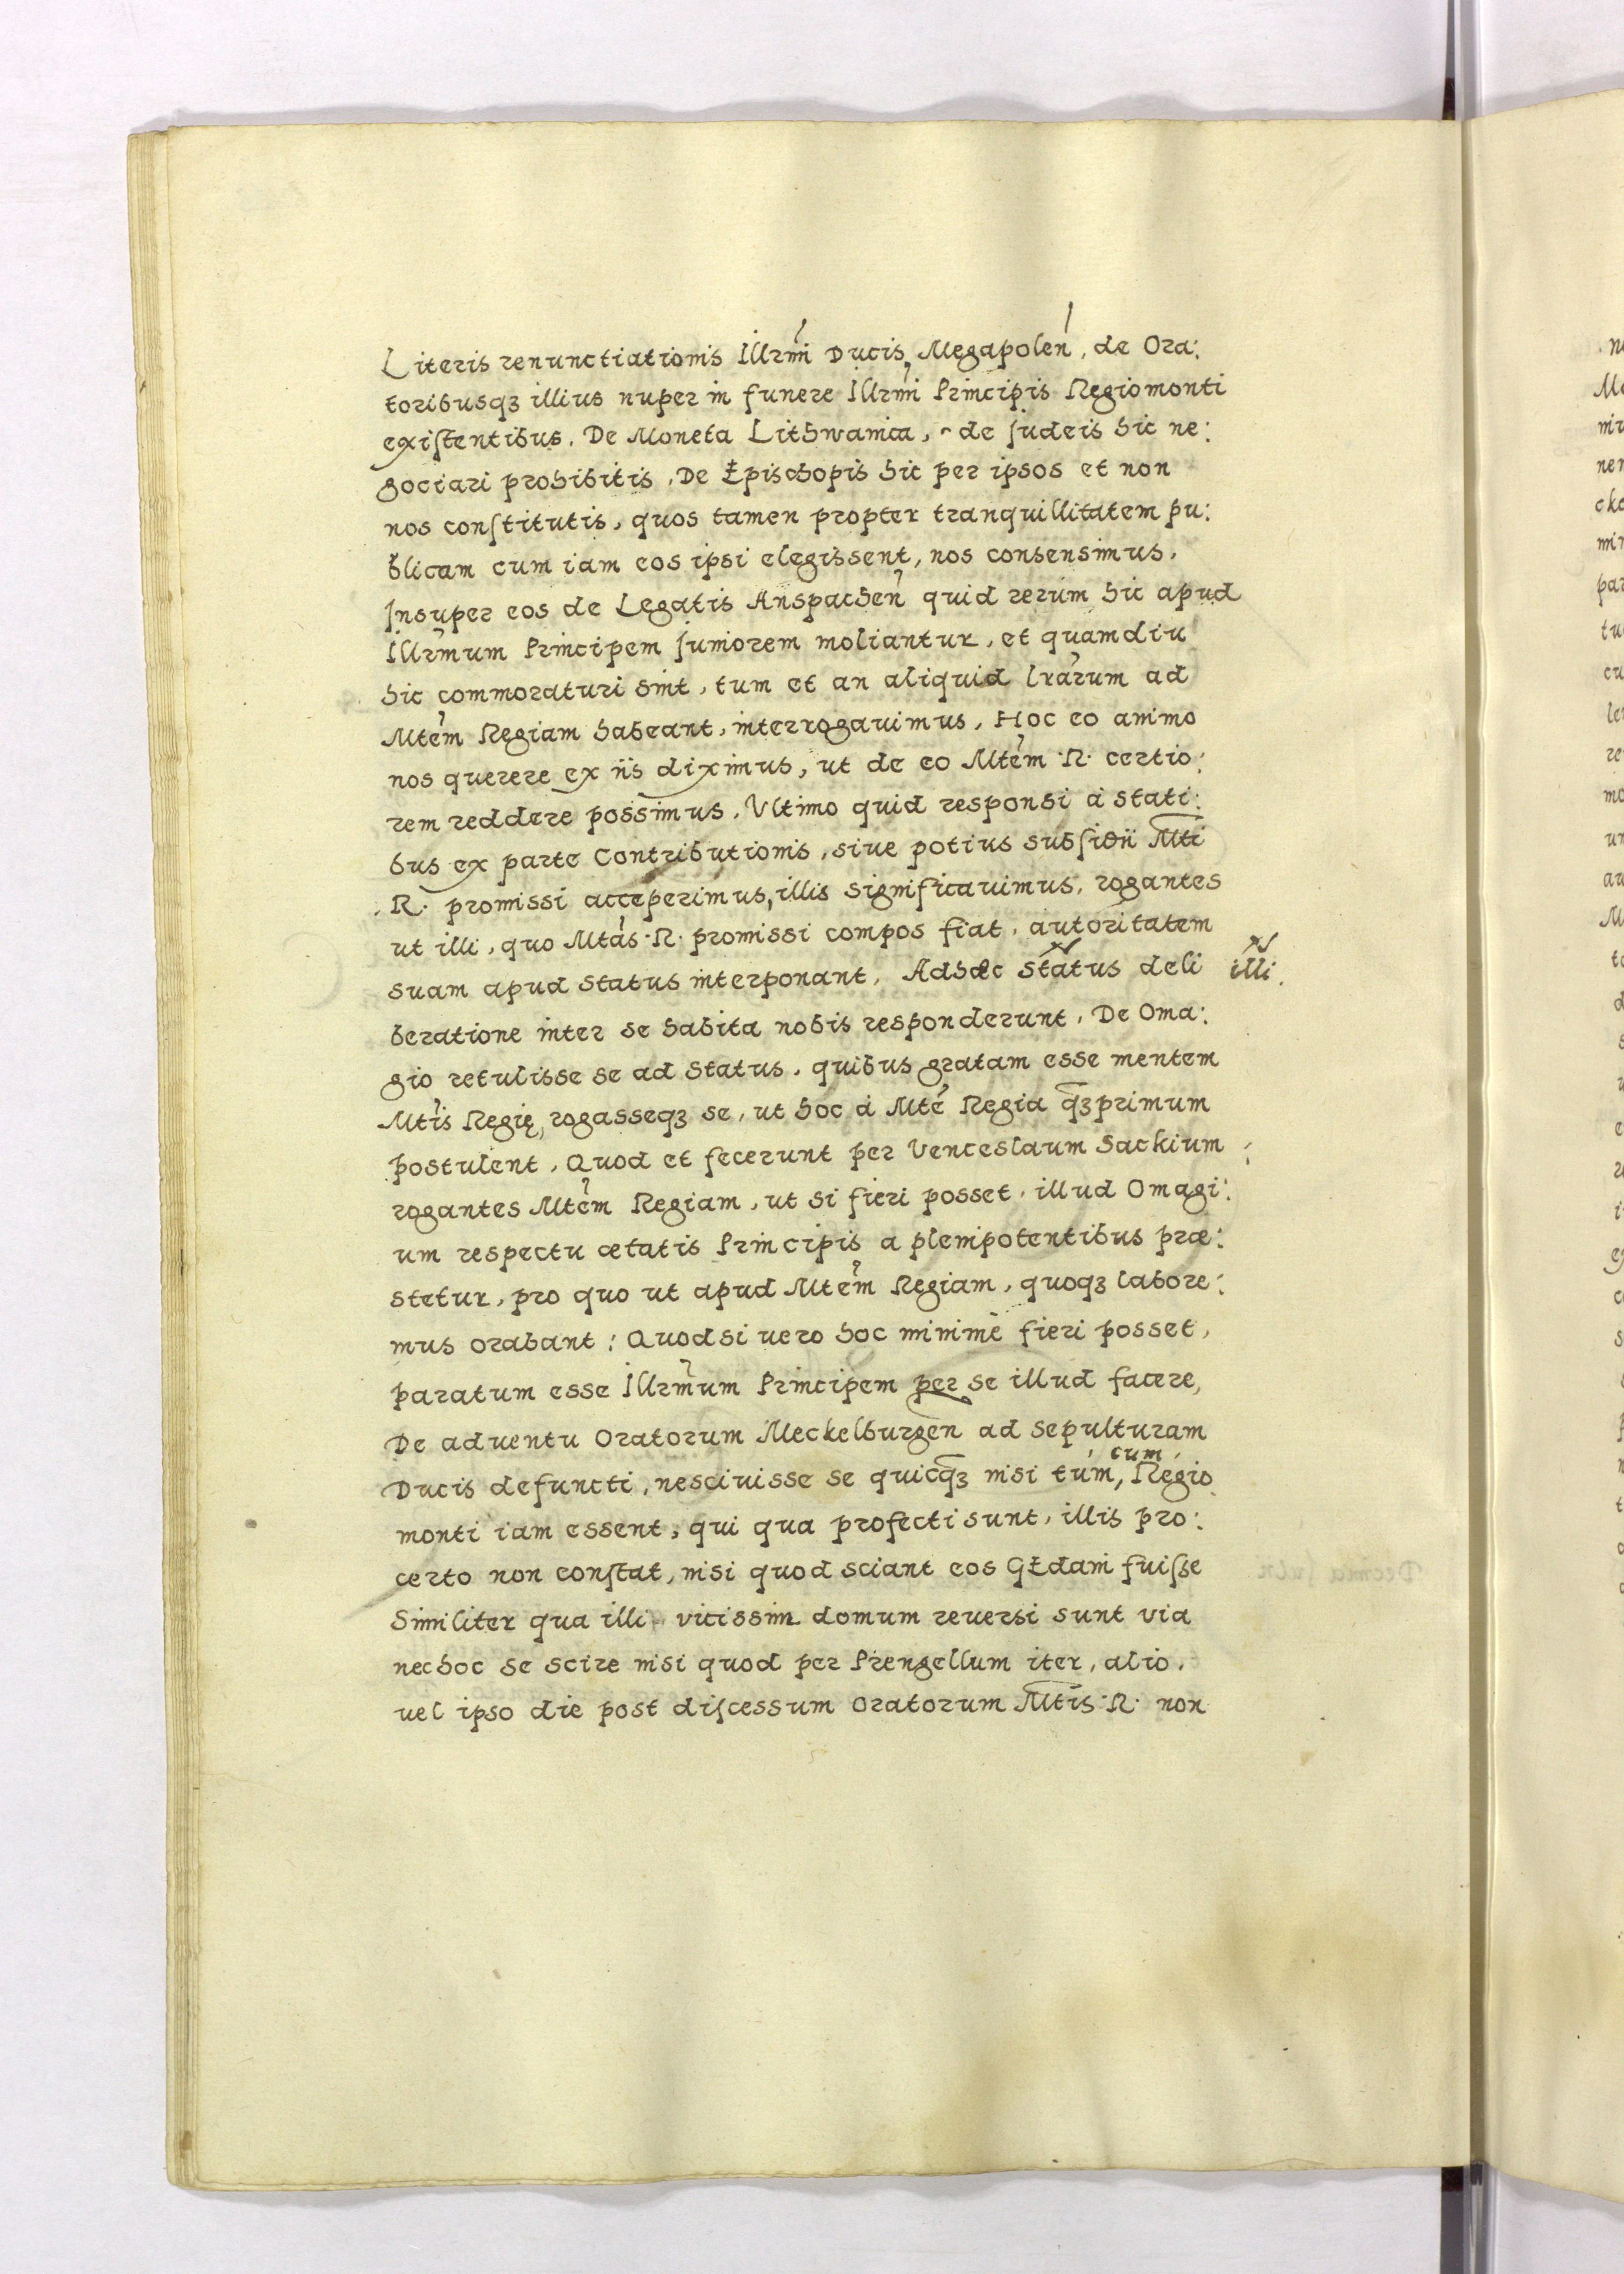 Literis renunctiationis Illrmi Ducis Megapolen, de Ora:
toribusqꝫ illius nuper in funere Illrmi Principis Regiomonti
existentibus. De Moneta Lithwanica, de Judeis hic ne:
gociari prohibitis, De Epischopis hic per ipsos et non
nos constitutis, quos tamen propter tranquillitatem pu:
blicam cum iam eos ipsi elegissent, nos consensimus.
Insuper eos de Legatis Anspachen quid rerum hic apud
Illrmum Principem Juniorem moliantur, et quamdiu
hic commoraturi sint, tum et an aliquid lrarum ad
Mtem Regiam habeant, interrogauimus, Hoc eo animo
nos querere ex iis diximus, ut de eo Mtem R. certio:
rem reddere possimus. Vltimo quid responsi à stati:
bus ex parte Contributionis, siue potius subsidii Mti
R. promissi acceperimus, illis significauimus, rogantes
ut illi, quo Mtas R. promissi compos fiat, autoritatem
suam apud status interponant. Adhæc status deli illi.
beratione inter se habita nobis responderunt. De Oma:
gio retulisse se ad status, quibus gratam esse mentem
Mtis Regię, rogasseqꝫ se, ut hoc à Mte Regia qꝫprimum
postulent, Quod et fecerunt per Venceslaum Sackium
rogantes Mtem Regiam, ut si fieri posset, illud Omagi:
um respectu ætatis Principis a plenipotentibus præ:
stetur, pro quo ut apud Mtem Regiam, quoqꝫ labore:
mus orabant: Quodsi uero hoc minimè fieri posset,
paratum esse Illrmum Principem per se illud facere,
De aduentu Oratorum Meckelburgen ad sepulturam
Ducis defuncti, nesciuisse se quicqꝫ nisi tum, cum Regio
monti iam essent, qui qua profecti sunt, illis pro:
certo non constat, nisi quod sciant eos Gedani fuisse
Similiter qua illi vicissim domum reuersi sunt via
nec hoc se scire nisi quod per Prengellum iter, alio.
uel ipso die post discessum Oratorum Mtis R. non